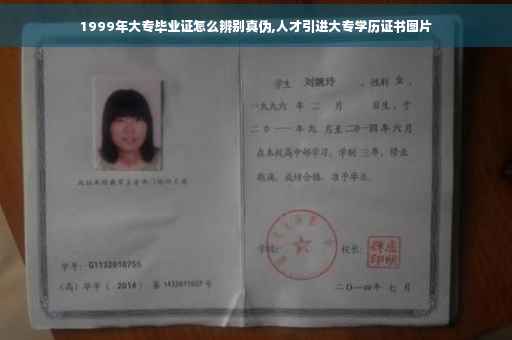 1999年大专毕业证怎么辨别真伪,人才引进大专学历证书图片
学生 刘婉玲 ,性别 女 ,
一九九六 年 二 月 日生,于
二〇一一年九 月至二〇一四年六月
在本校高中部学习,学制 三年,修业
期满,成绩合格,准予毕业。
学号: G1132010755
(高)毕字( 2014 )第 1432011027 号
学校:
校长:
二〇一四年 七 月